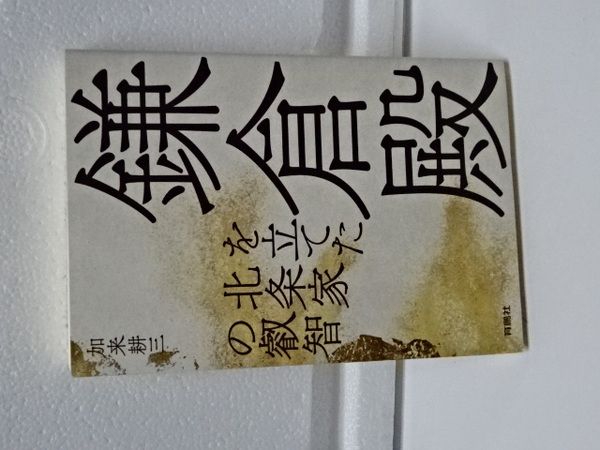 鎌倉殿
を立てた
北条家
の叡智
加来耕三
育鵬社